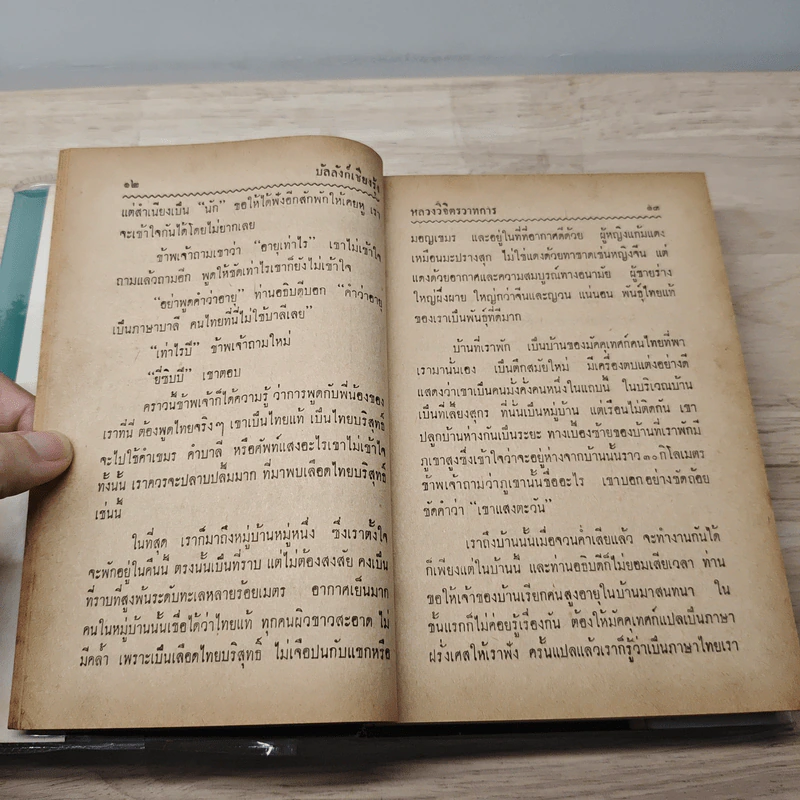 ๑๒ บัลลังก์เชียงรุ้ง
แต่สำเนียงเป็น “นัก” ขอให้ได้ฟังอีกสักพักให้เคยหู เรา
จะเข้าใจกันได้โดยไม่ยากเลย
ข้าพเจ้าถามเขาว่า “อายุเท่าไร” เขาไม่เข้าใจ
ถามแล้วถามอีก พูดให้ชัดเท่าไรเขาก็ยังไม่เข้าใจ
“อย่าพูดคำว่าอายุ” ท่านอธิบดีบอก “คำว่าอายุ
เป็นภาษาบาลี คนไทยที่นี่ไม่ใช้บาลีเลย”
“เท่าไรปี” ข้าพเจ้าถามใหม่
“ยี่ซิบปี” เขาตอบ
คราวนี้ข้าพเจ้าก็ได้ความรู้ ว่าการพูดกับพี่น้องของ
เราที่นี่ ต้องพูดไทยจริงๆ เขาเป็นไทยแท้ เป็นไทยบริสุทธิ์
จะไปใช้คำเขมร คำบาลี หรือศัพท์แสงอะไรเขาไม่เข้าใจ
ทั้งนั้น เราควรจะปลาบปลื้มมาก ที่มาพบเลือดไทยบริสุทธิ์
เช่นนี้
ในที่สุด เราก็มาถึงหมู่บ้านหมู่หนึ่ง ซึ่งเราตั้งใจ
จะพักอยู่ในคืนนี้ ตรงนั้นเป็นที่ราบ แต่ไม่ต้องสงสัย คงเป็น
ที่ราบที่สูงพ้นระดับทะเลหลายร้อยเมตร อากาศเย็นมาก
คนในหมู่บ้านนั้นเชื่อได้ว่าไทยแท้ ทุกคนผิวขาวสะอาด ไม่
มีคล้ำ เพราะเป็นเลือดไทยบริสุทธิ์ ไม่เจือปนกับแขกหรือ
หลวงวิจิตรวาทการ ๑๓
มอญเขมร และอยู่ในที่ที่อากาศดีด้วย ผู้หญิงแก้มแดง
เหมือนมะปรางสุก ไม่ใช่แดงด้วยทาชาดเช่นหญิงจีน แต่
แดงด้วยอากาศและความสมบูรณ์ทางอนามัย ผู้ชายร่าง
ใหญ่ผึ่งผาย ใหญ่กว่าจีนและญวน แน่นอน พันธุ์ไทยแท้
ของเราเป็นพันธุ์ที่ดีมาก
บ้านที่เราพัก เป็นบ้านของมัคคุเทศก์คนไทยที่พา
เรามานั่นเอง เป็นตึกสมัยใหม่ มีเครื่องตบแต่งอย่างดี
แสดงว่าเขาเป็นคนมั่งคั่งคนหนึ่งในแถบนี้ ในบริเวณบ้าน
เป็นที่เลี้ยงสุกร ที่นั้นเป็นหมู่บ้าน แต่เรือนไม่ติดกัน เขา
ปลูกบ้านห่างกันเป็นระยะ ทางเบื้องซ้ายของบ้านที่เราพักมี
ภูเขาสูงซึ่งเข้าใจว่าจะอยู่ห่างจากบ้านนั้นราว ๓๐ กิโลเมตร
ข้าพเจ้าถามว่าภูเขานั้นชื่ออะไร เขาบอกอย่างชัดถ้อย
ชัดคำว่า “เขาแสงตะวัน”
เราถึงบ้านนั้นเมื่อจวนค่ำเสียแล้ว จะทำงานกันได้
ก็เพียงแต่ในบ้านนี้ และท่านอธิบดีก็ไม่ยอมเสียเวลา ท่าน
ขอให้เจ้าของบ้านเรียกคนสูงอายุในบ้านมาสนทนา ใน
ชั้นแรกก็ไม่ค่อยรู้เรื่องกัน ต้องให้มัคคุเทศก์แปลเป็นภาษา
ฝรั่งเศสให้เราฟัง ครั้นแปลแล้วเราก็รู้ว่าเป็นภาษาไทยเรา